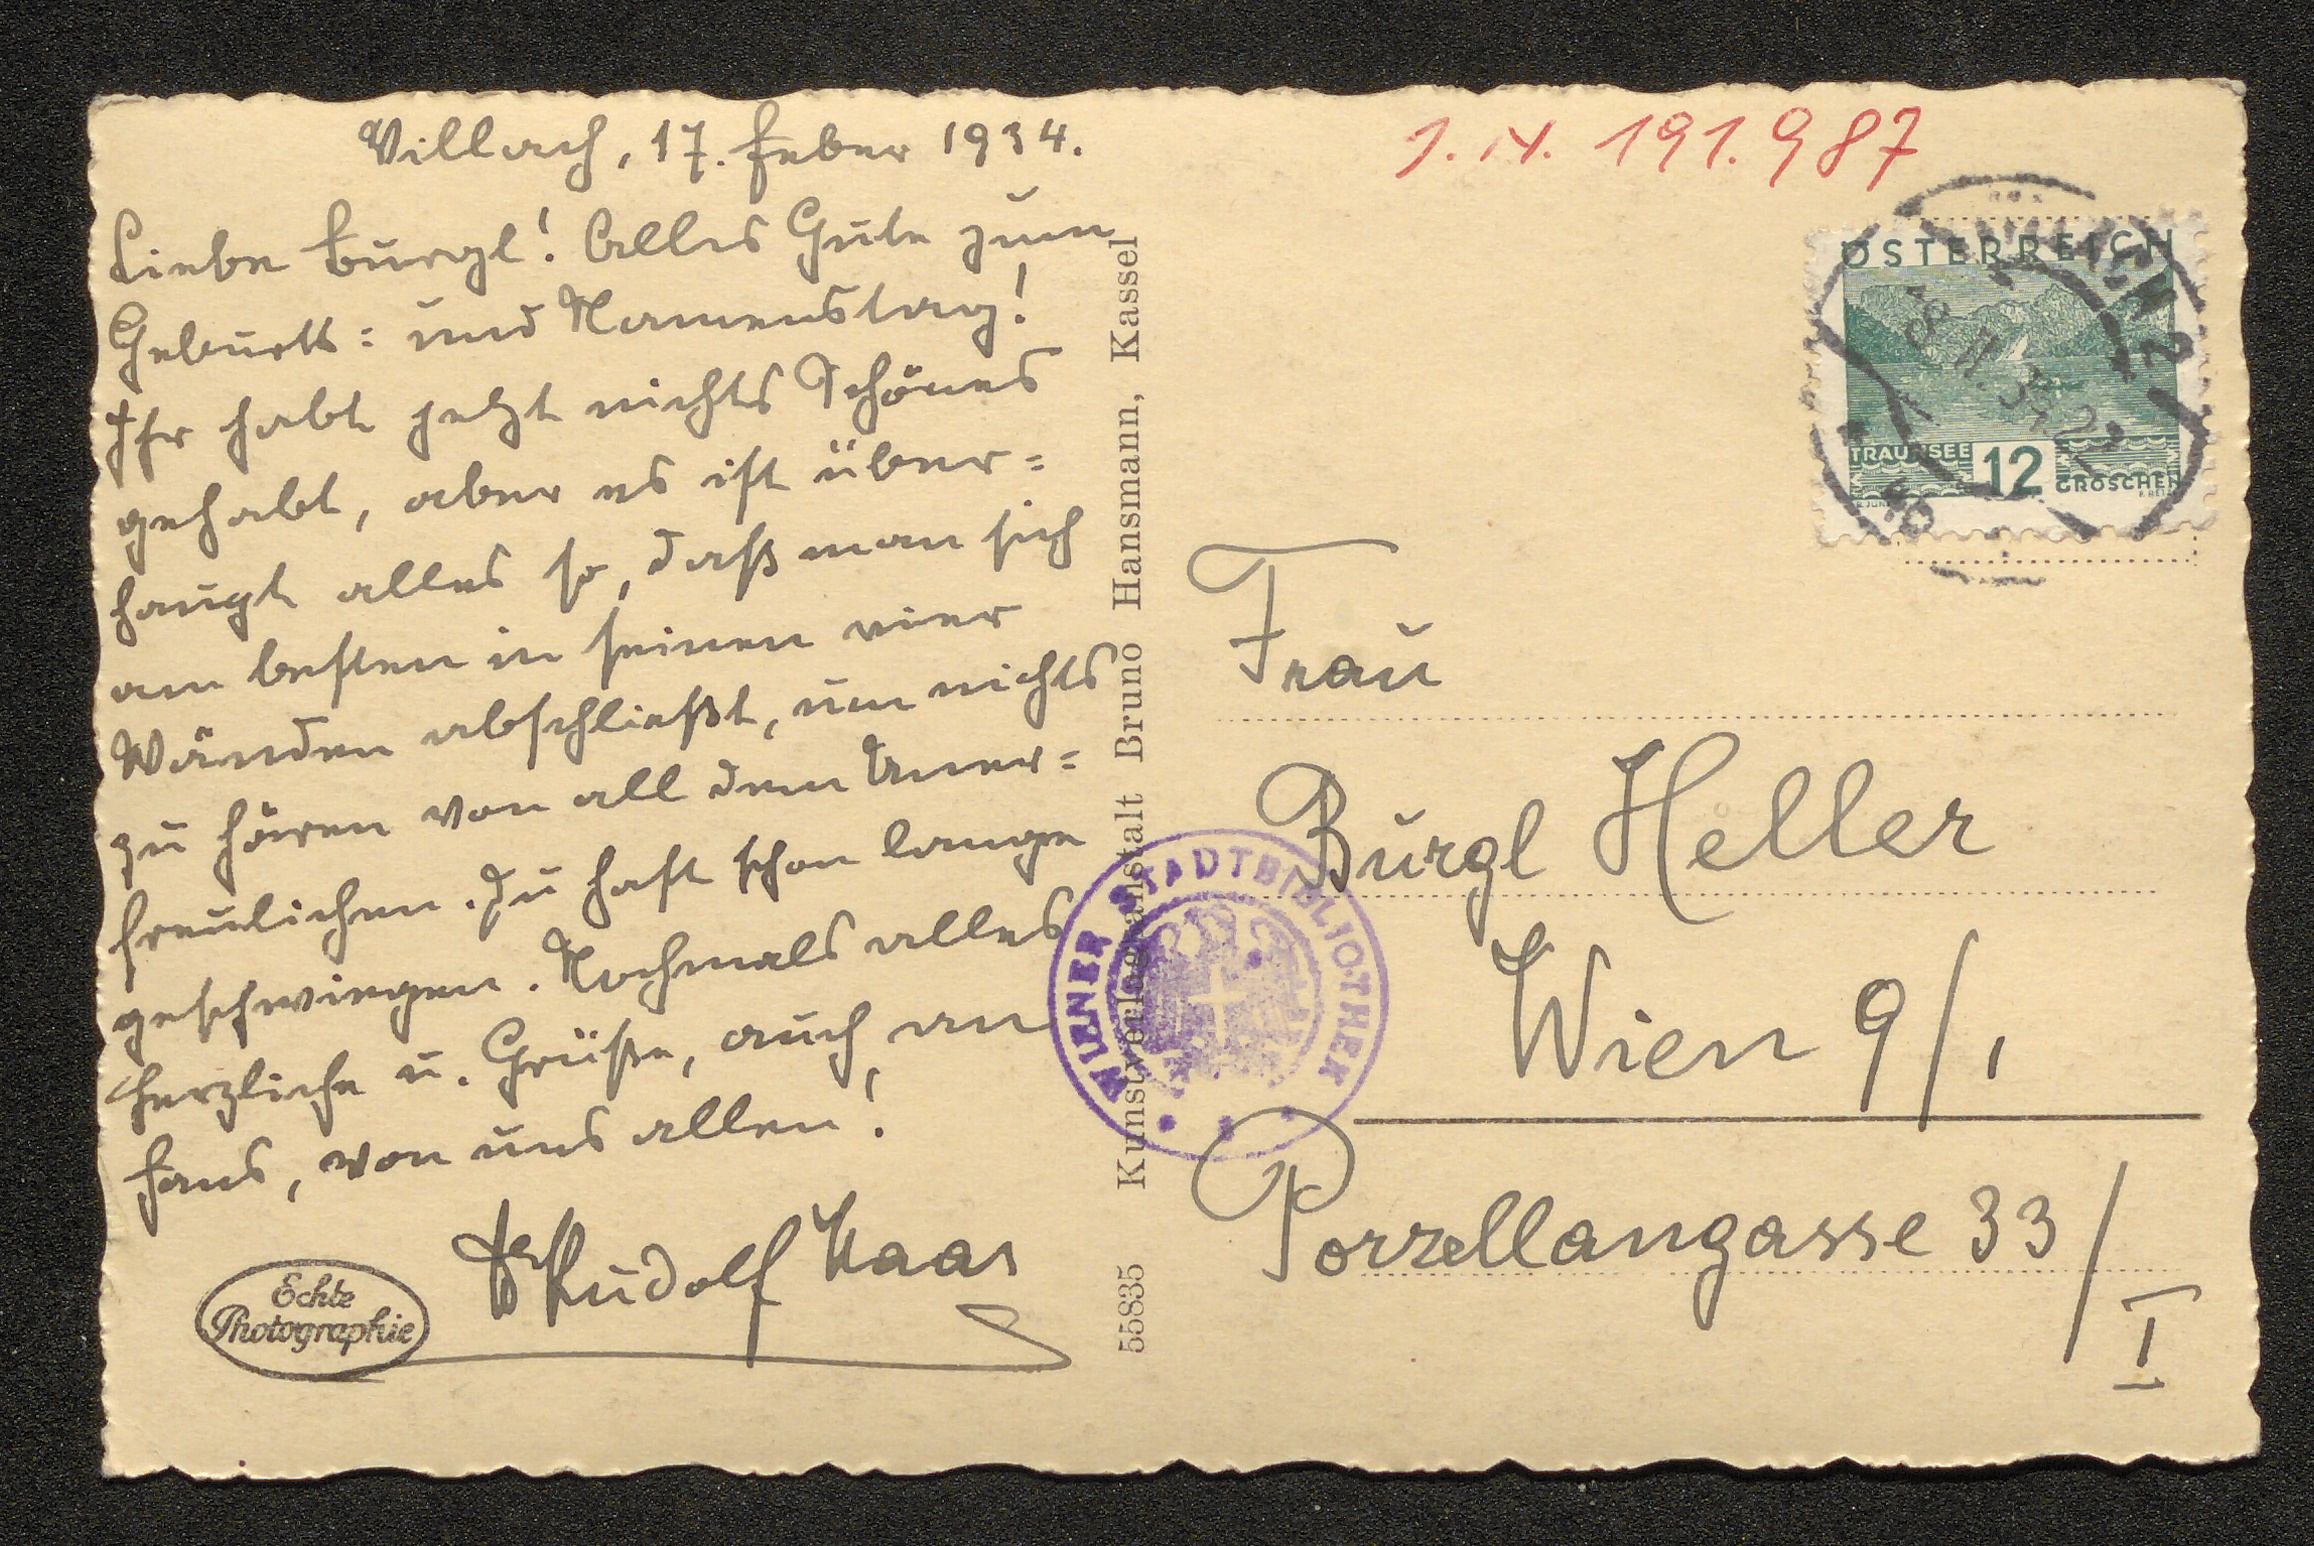 Villach, 17. Feber 1934.
Liebe Burgl! Alles Gute zum
Geburts= und Namenstag!
Ihr habt jetzt nichts Schönes
gehabt, aber es ist über=
haupt alles so, daß man sich
am besten in seinen vier
Wänden abschließt, um nichts
zu hören von all dem Uner=
freulichen. Du hast schon lange
geschwiegen. Nochmals alles
Herzliche u. Grüße, auch an
Hans, von uns allen!
Dr Rudolf Haas
Echte
Photographie
55835 Kunstverlagsanstalt Bruno Hansmann, Kassel
I. N. 191.987
ÖSTERREICH
TRAUNSEE
12
GROSCHEN
WIENER STADTBIBLIOTHEK
Frau
Burgl Heller
Wien 9/1
Porzellangasse 33/
I